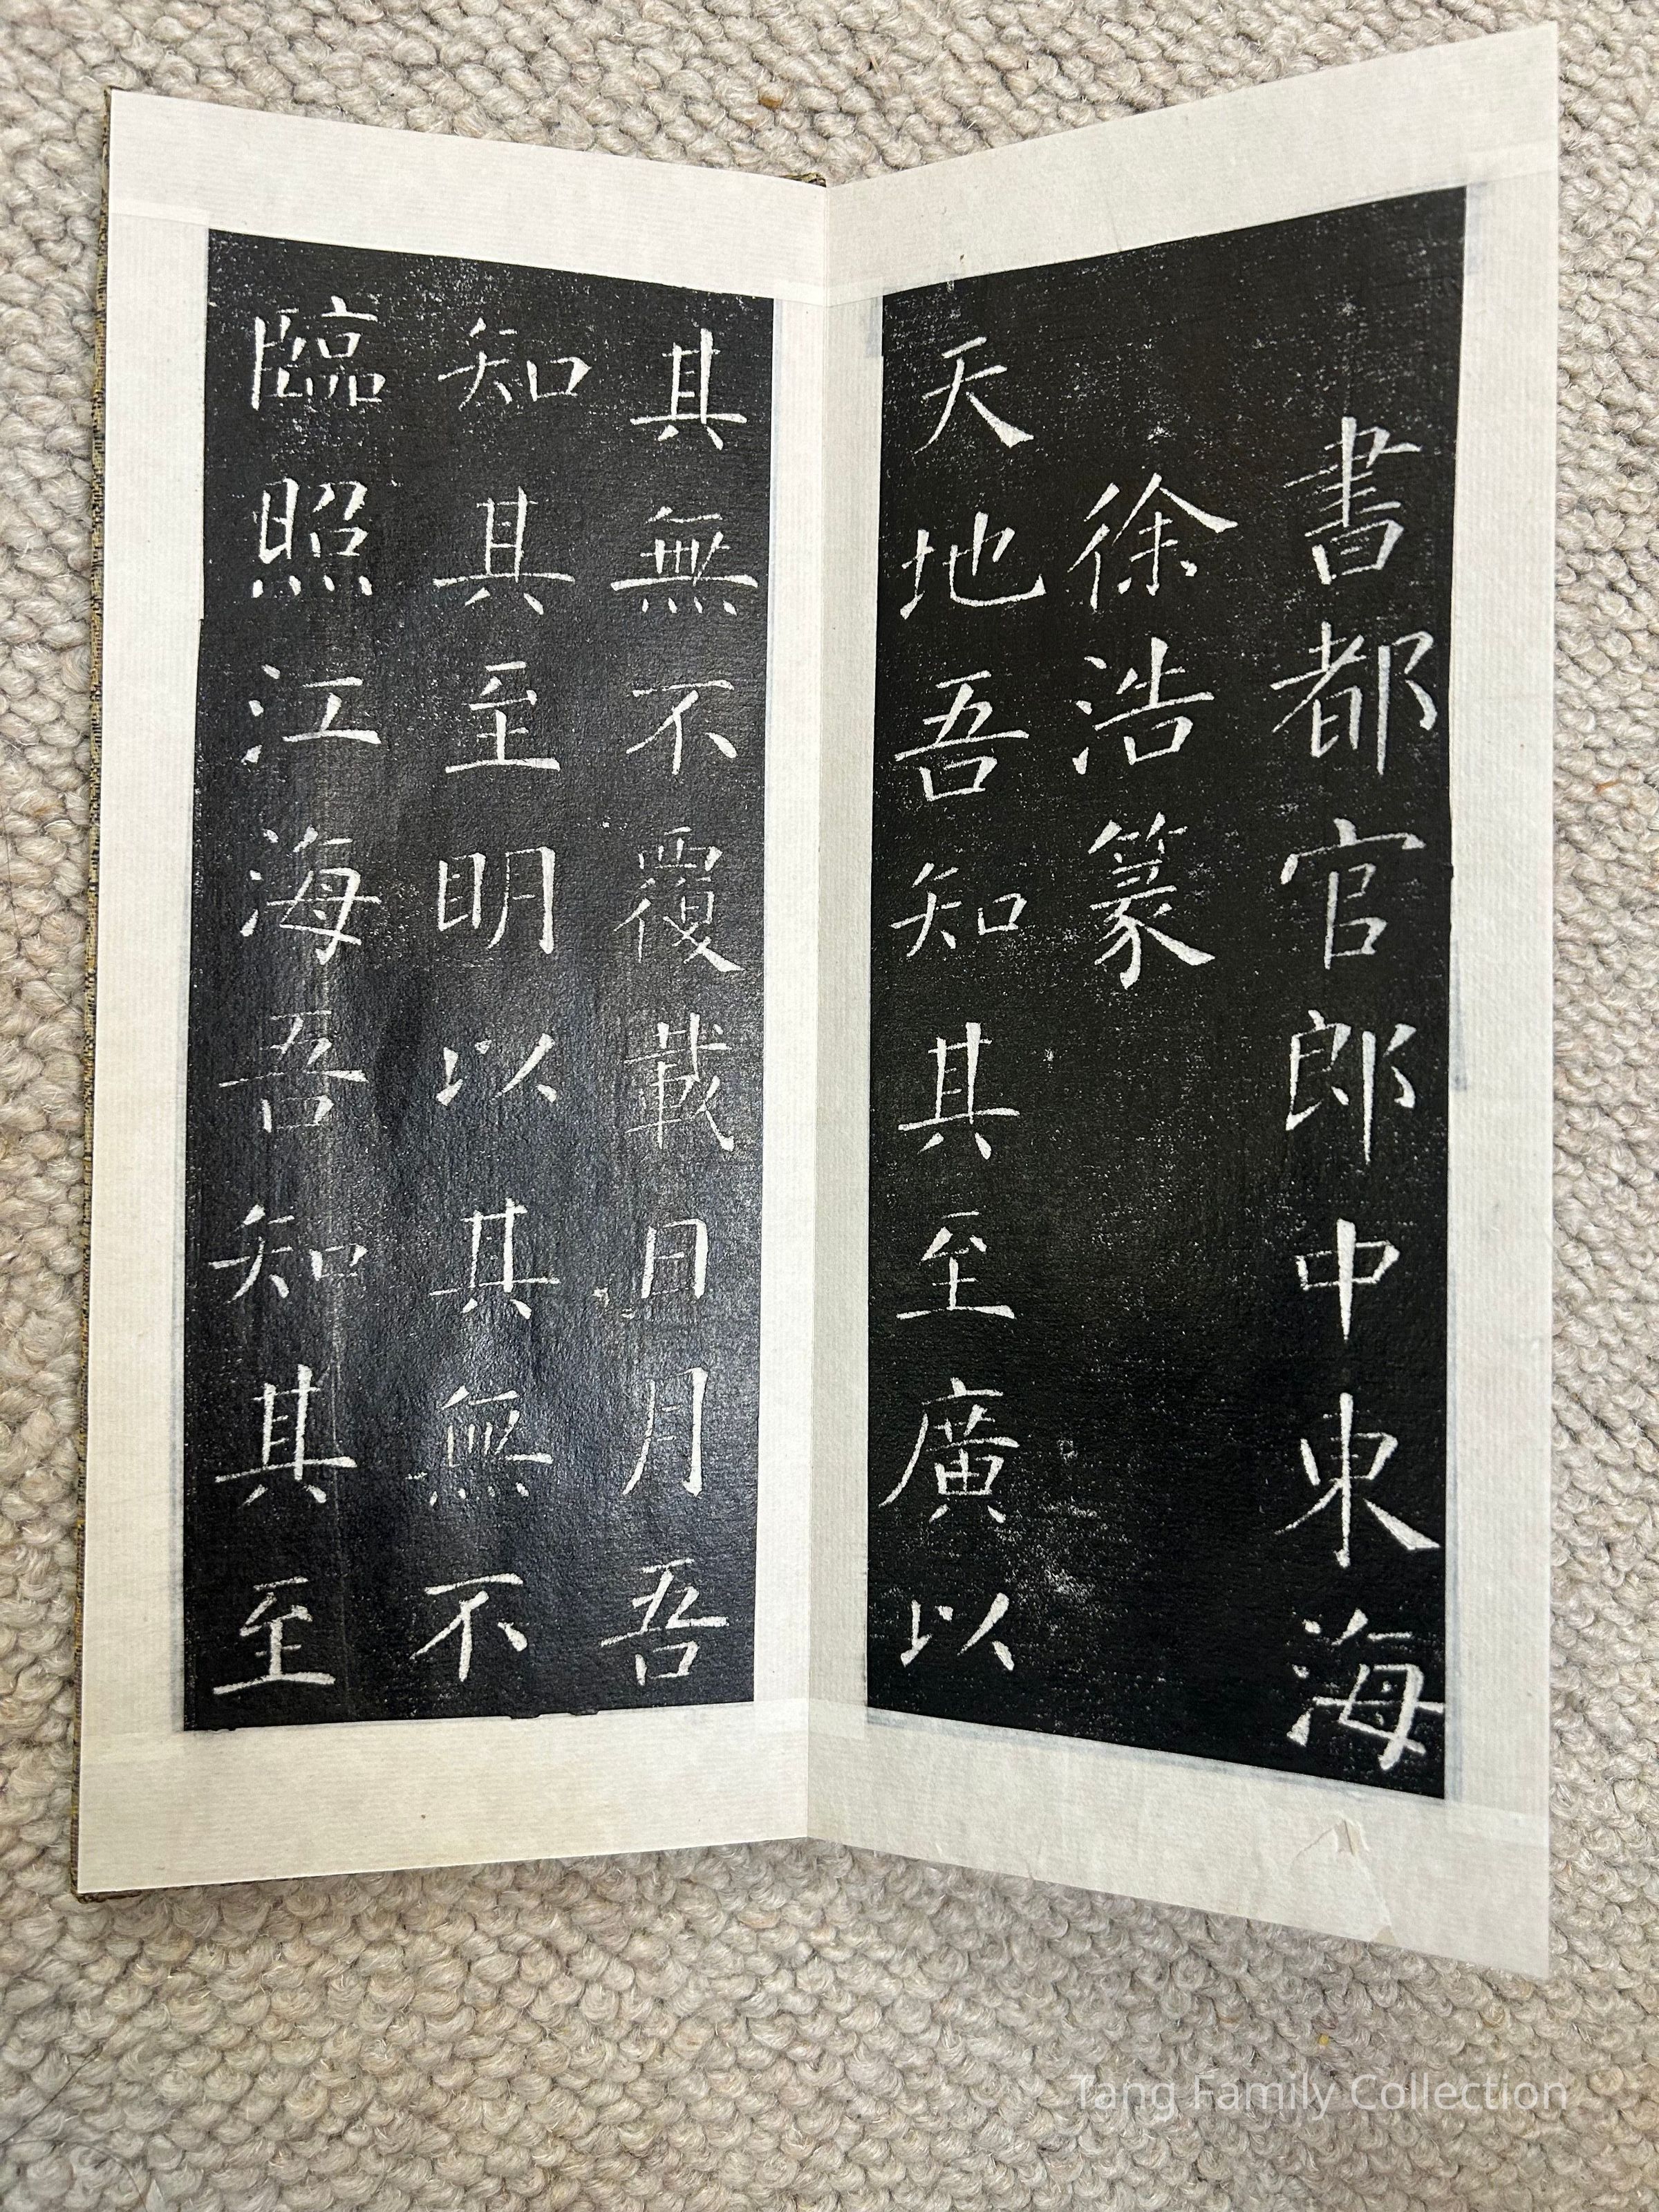 書都官郎中東海
徐浩篆
天地吾知其至廣以
其無不覆載日月吾
知其至明以其無不
臨照江海吾知其至
Tang Family Collection